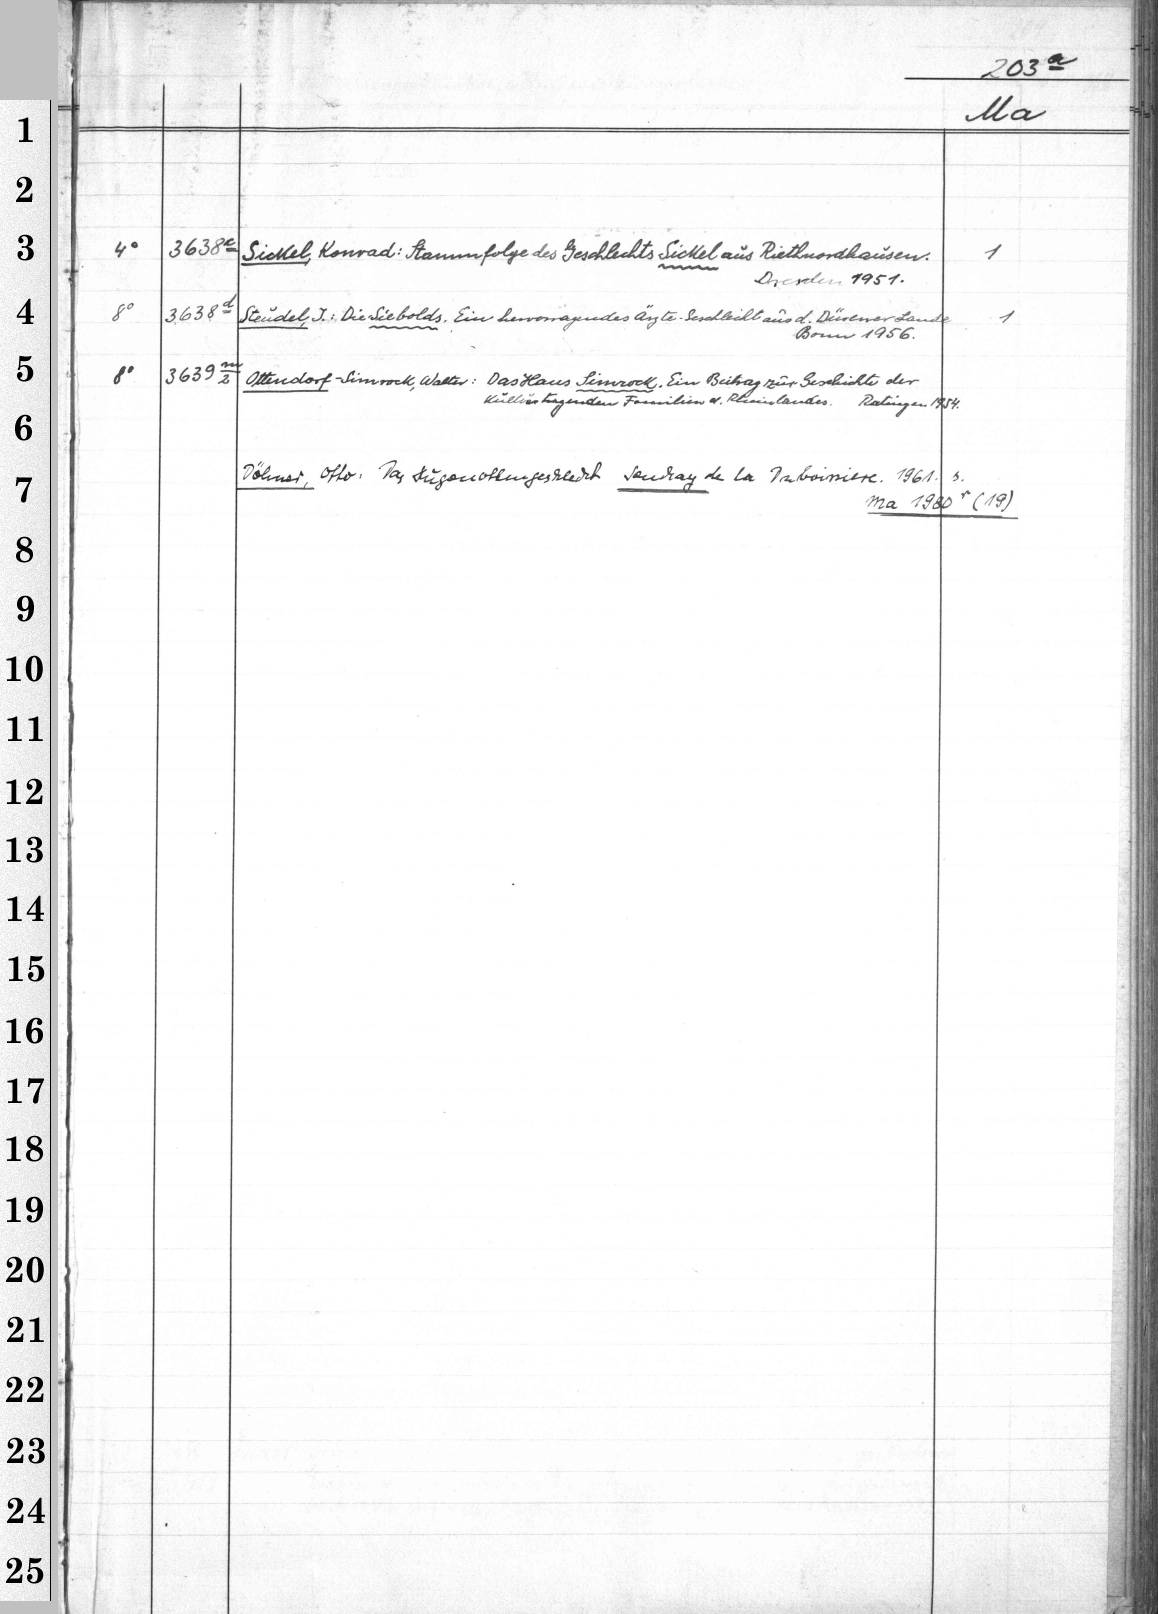 203 a
Ma
1
2
3 4° 3638 a Sickel, Konrad: Stammfolge des Geschlechts Sickel aus Riethnordhausen. 1
Dresden 1951.
4 8° 3638 d Steudel, J.: Die Siebolds. Ein hervorragendes Ärzte-Geschlecht aus d. Dürener Lande 1
Bonn 1956.
5 8° 3639 m/2 Ottendorf-Simrock, Walter: Das Haus Simrock. Ein Beitrag zur Geschichte der
kulturtragenden Familien d. Rheinlandes. Ratingen 1954.
6
7 Döhner, Otto: Das Hugenottengeschlecht de la 1961. s.
Ma 1980 r (19)
8
9
10
11
12
13
14
15
16
17
18
19
20
21
22
23
24
25